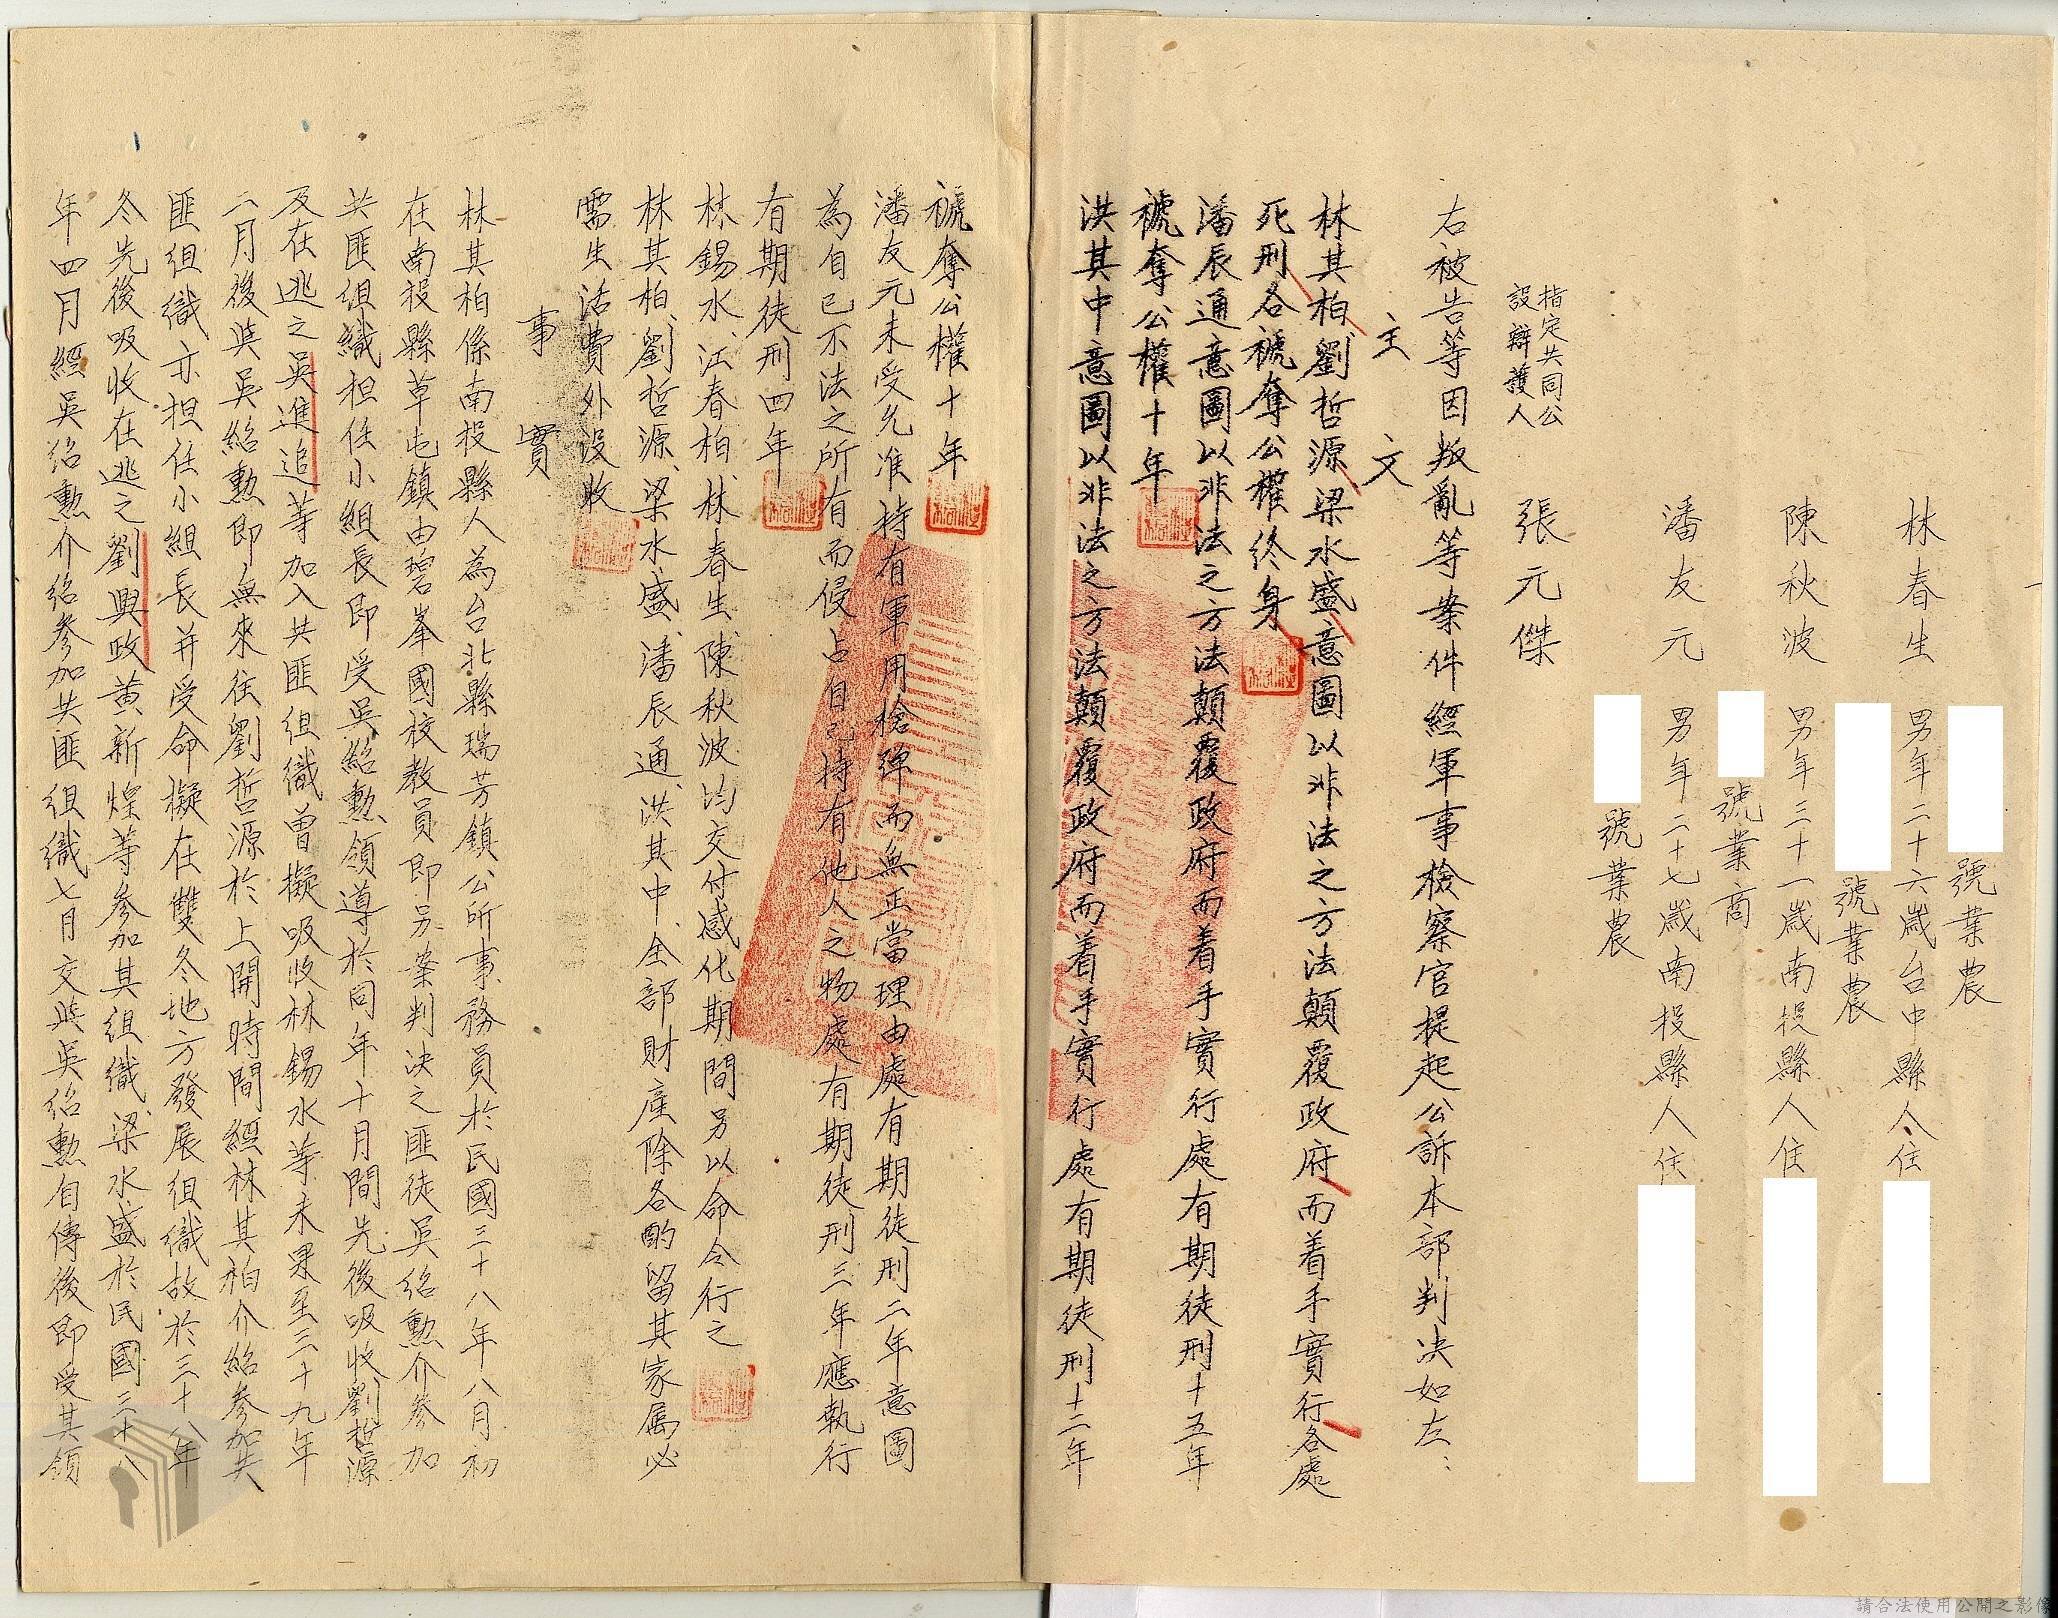 號業農
林春生　男年二十六歲台中縣人住
號業農
陳秋波　男年三十一歲南投縣人住
號業商
潘友元　男年二十七歲南投縣人住
號業農
指定共同公
設辯護人
張元傑
右被告等因叛亂等案件經軍事檢察官提起公訴本部判决如左：
主文
林其柏劉哲源梁水盛意圖以非法之方法顛覆政府而着手實行各處
死刑各褫奪公權終身
潘辰通意圖以非法之方法顛覆政府而着手實行處有期徒刑十五年
褫奪公權十年
洪其中意圖以非法之方法顛覆政府而着手實行處有期徒刑十二年
褫奪公權十年
潘友元未受允准持有軍用槍彈而無正當理由處有期徒刑二年意圖
為自己不法之所有而侵占自己持有他人之物處有期徒刑三年應執行
有期徒刑四年
林錫水、江春柏、林春生、陳秋波均交付感化期間另以命令行之
林其柏、劉哲源、梁水盛、潘辰通、洪其中、全部財產除各酌留其家屬必
需生活費外没收
事實
林其柏係南投縣人為台北縣瑞芳鎮公所事務員於民國三十八年八月初
在南投縣草屯鎮由碧峯國校教員即另案判决之匪徒吳紹勲介參加
共匪組織担任小組長即受吳紹勲領導於同年十月間先後吸收劉哲源
及在逃之吳進追等加入共匪組織曾擬吸收林錫水等未果至三十九年
二月後與吳紹勲即無來往劉哲源於上開時間經林其柏介紹參加共
匪組織亦担任小組長并受命擬在雙冬地方發展組織故於三十八年
冬先後吸收在逃之劉興政黄新煌等參加其組織、梁水盛於民國三十八
年四月經吳紹勲介紹參加共匪組織七月交與吳紹勲自傳後即受其領
請合法使用公開之影像